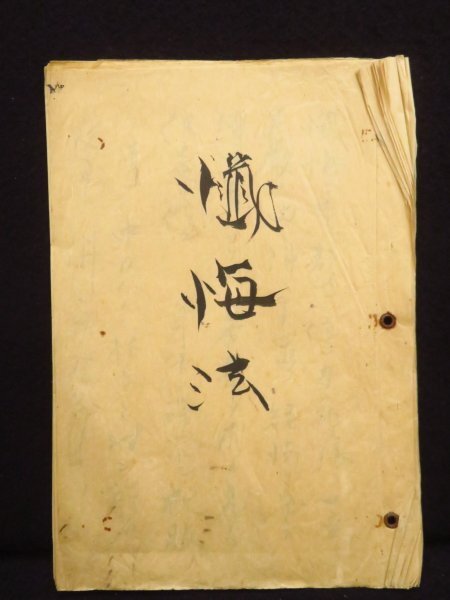 懺悔法